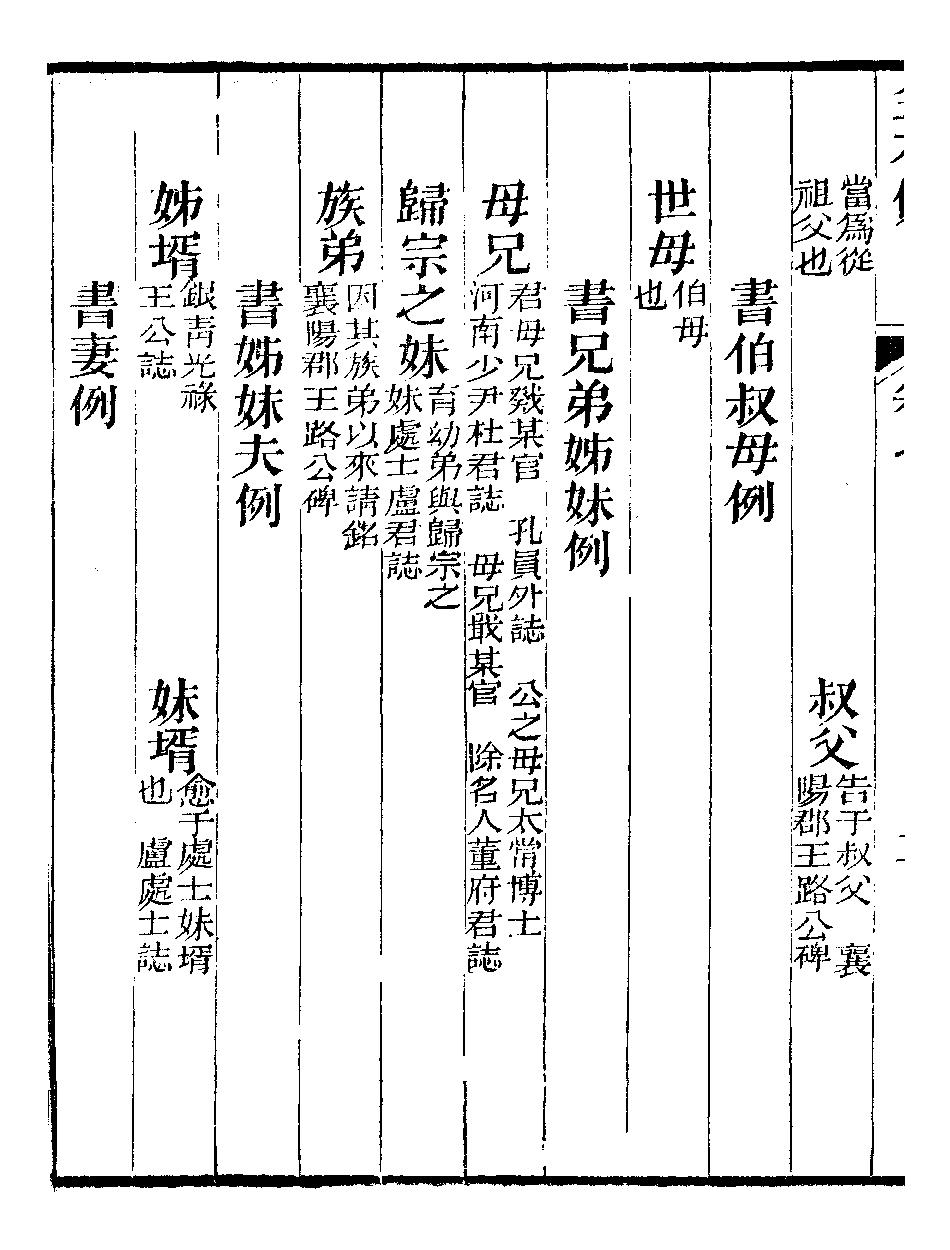 當爲從祖父也　叔父告于叔父　襄陽郡王路公碑
書伯叔母例
世母伯母也
書兄弟姊妹例
母兄君母兄戣某官　孔員外誌　公之母兄太常博士河南少尹杜君誌　母兄戢某官　除名人董府君誌
歸宗之妹育幼弟與歸宗之妹處士盧君誌
族弟因其族弟以來請銘襄陽郡王路公碑
書姊妹夫例
姊壻銀靑光祿王公誌　妹壻愈于處士妹壻也　盧處士誌
書妻例